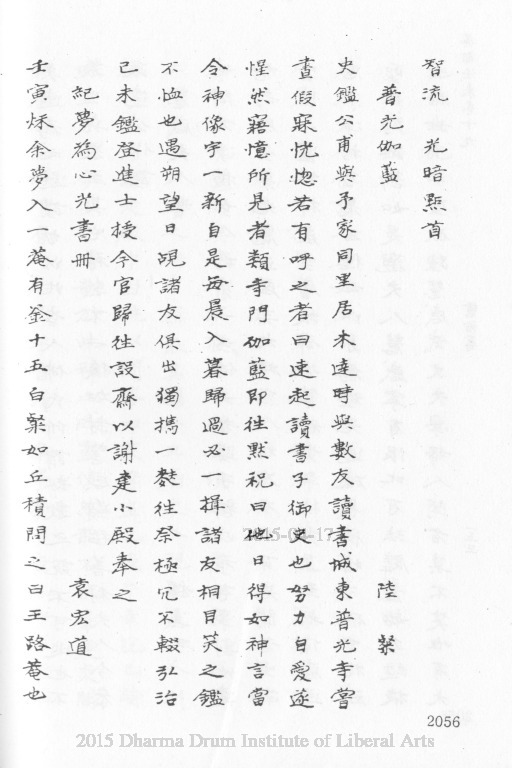 智流　光暗點首
普光伽藍　陸粲
史鑑公甫與予家同里居未達時與數友讀書城東普光寺嘗
晝假寐恍惚若有呼之者曰速起讀書子御史也努力自愛遂
惺然寤憶所見者類寺門伽藍即往默祝曰他日得如神言當
令神像宇一新自是每晨入暮歸過必一揖諸友相目笑之鑑
不恤也遇朔望日覘諸友俱出獨携一麰往祭極冗不輟弘治
己未鑑登進士授今官歸往設齋以謝建小殿奉之
紀夢為心光書冊　袁宏道
壬寅秌余夢入一菴有釜十五白粲如丘積問之曰王路菴也
2056
2015-04-17
2015 Dharma Drum Institute of Liberal Arts